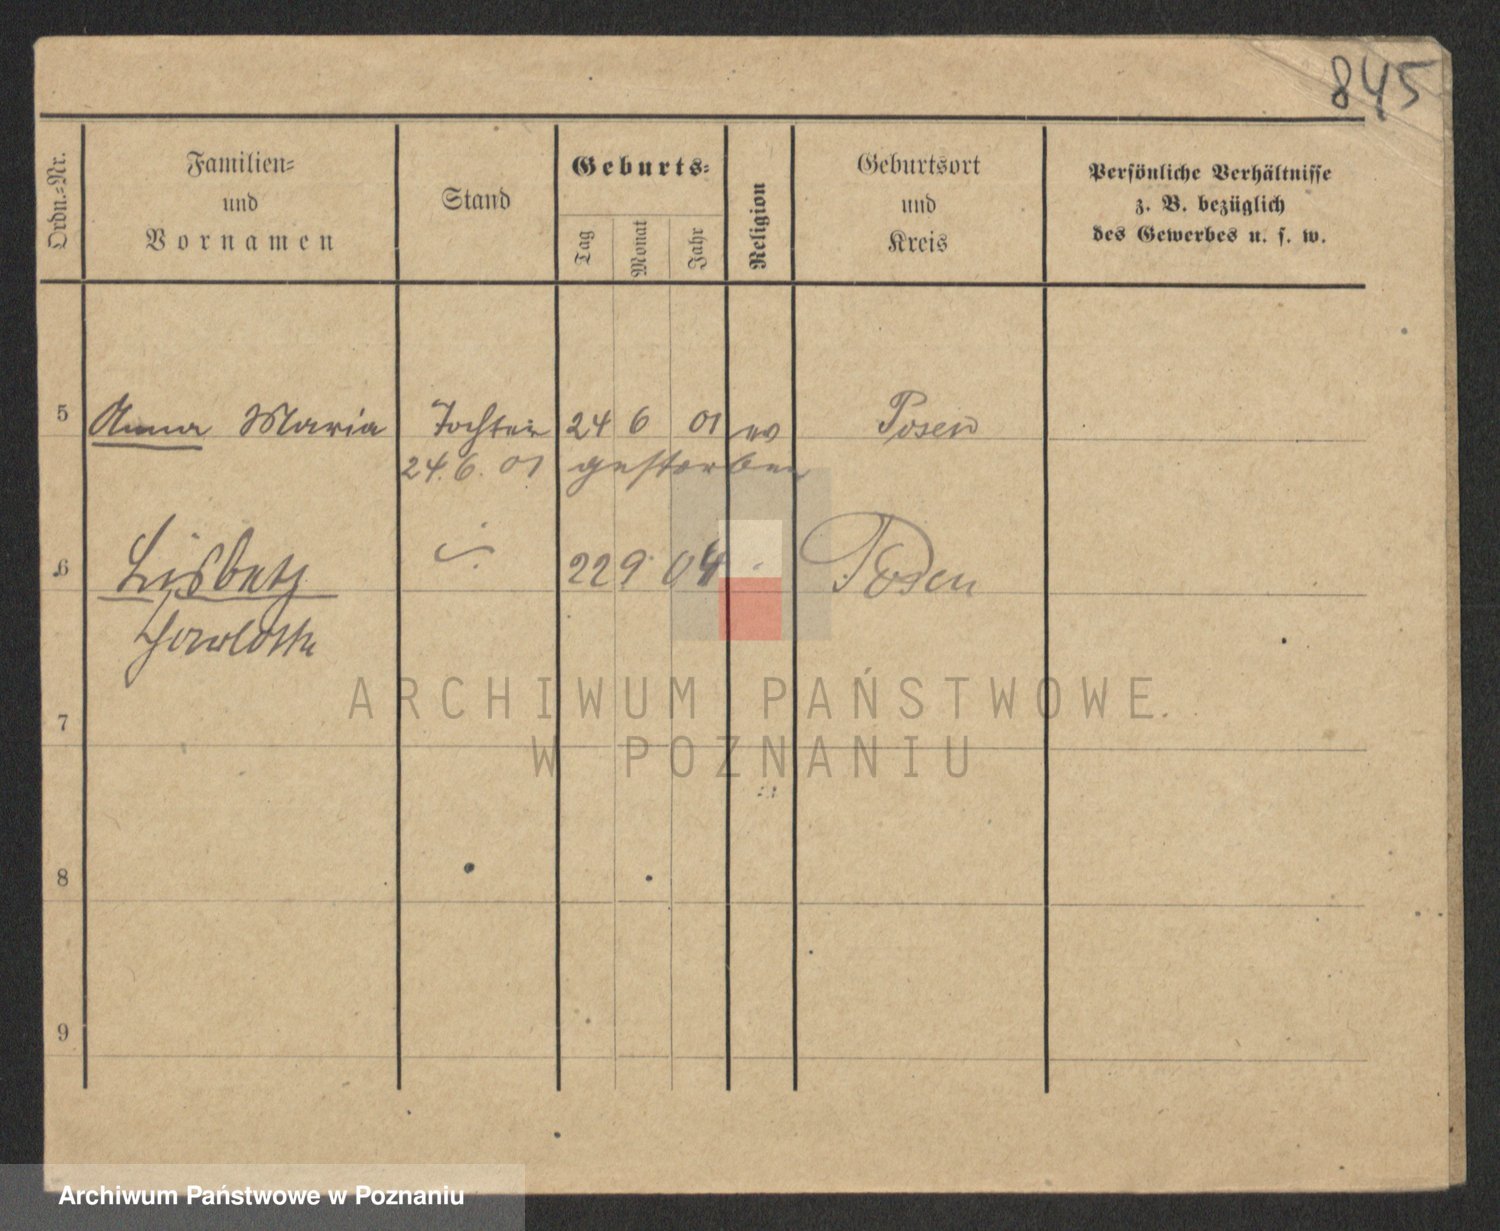 845
Ordn.-Nr.
Familien-
und
Vornamen
Stand
Geburts-
Tag
Monat
Jahr
Religion
Geburtsort
und
Kreis
Persönliche Verhältnisse
z. B. bezüglich
des Gewerbes u. s. w.
5 Anna Maria Tochter 24 6 01 ev Posen
24.6.01 gestorben
6 Lisbeth 22 9 04 Posen
7
ARCHIWUM PAŃSTWOWE
W POZNANIU
8
9
Archiwum Państwowe w Poznaniu